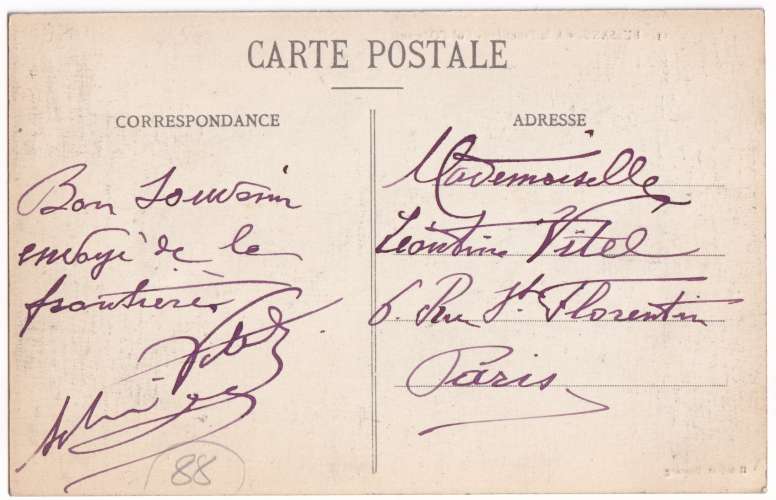 CARTE POSTALE
CORRESPONDANCE
ADRESSE
Bon Souvenir
envoyé de la
frontière
Vitel
Mademoiselle
Léontine Vitel
6. Rue St. Florentin
Paris
88